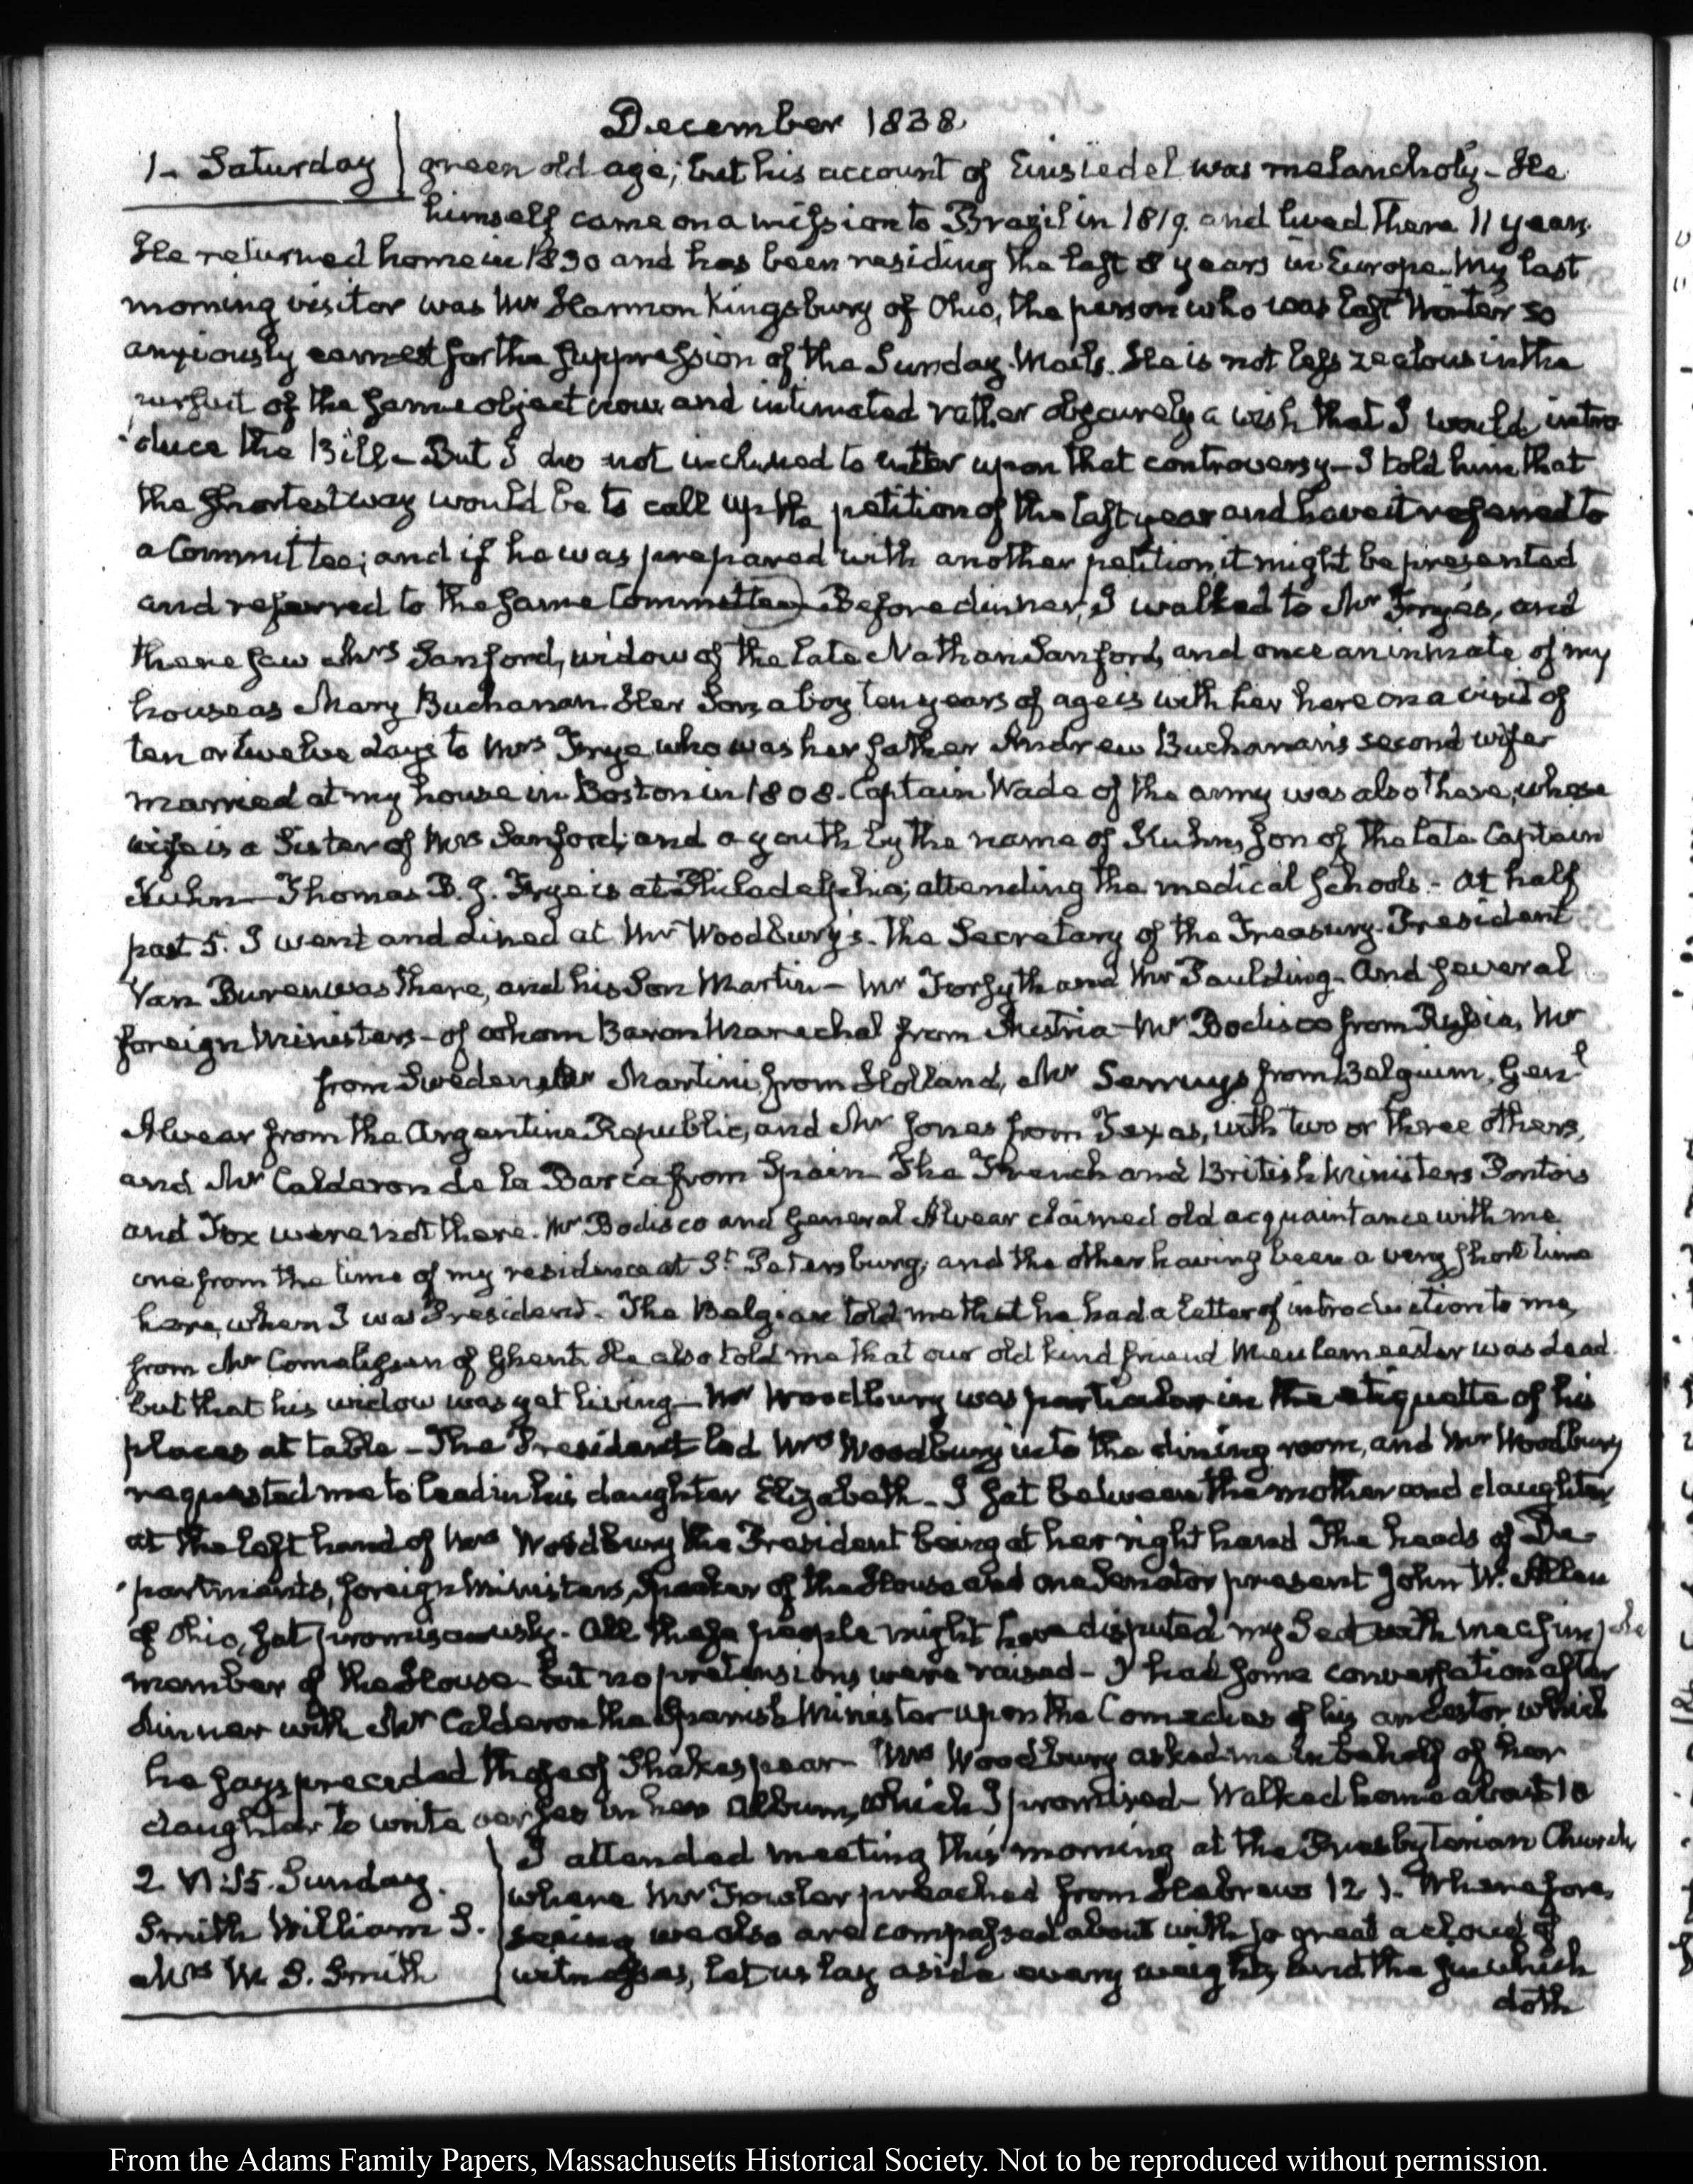 December 1838
1. Saturday green old age; but his account of Einsiedel was melancholy - He
himself came on a mission to Brazil in 1819. and lived there 11 years.
He returned home in 1830 and has been residing the last 8 years in Europe. My last
morning visitor was Mr Harmon Kingsbury of Ohio, the person who was last Winter so
anxiously earnest for the suppression of the Sunday Mails. He is not less zealous in the
pursuit of the same object now and intimated rather obscurely a wish that I would intro-
duce the Bill - But I do not inclined to enter upon that controversy - I told him that
the shortest way would be to call up the petition of the last year and have it referred to
a Committee; and if he was prepared with another petition it might be presented
and referred to the same Committee. Before dinner, I walked to Mr Frye's, and
there saw Mrs Sanford, widow of the late Nathan Sanford, and once an inmate of my
house as Mary Buchanan Her Son, a boy ten years of age is with her here on a visit of
ten or twelve days to Mrs Frye who was her father Andrew Buchanan's second wife
married at my house in Boston in 1808. Captain Wade of the army was also there, whose
wife is a Sister of Mrs Sanford; and a youth by the name of Kuhn, son of the late Captain
Kuhn - Thomas B. J. Frye is at Philadelphia; attending the medical Schools. - At half
past 5. I went and dined at Mr Woodbury's. the Secretary of the Treasury. President
Van Buren was there, and his Son Martin - Mr Forsyth and Mr Paulding - And several
foreign Ministers - of whom Baron Marechal from Austria - Mr Bodisco from Russia, Mr
from Sweden, Mr Martini from Holland, Mr Serruys from Belgium, Genl
Alvear from the Argentine Republic, and Mr Jones from Texas, with two or three others,
and Mr Calderon de la Barca from Spain - The French and British Ministers Pontois
and Fox were not there. Mr Bodisco and General Alvear claimed old acquaintance with me
one from the time of my residence at St Petersburg, and the other having been a very short time
here, when I was President. The Belgian told me that he had a letter of introduction to me,
from Mr Cornelissen of Ghent. He also told me that our old kind friend Meulemeester was dead.
but that his widow was yet living - Mr Woodbury was particular in the etiquette of his
places at table - The President led Mrs Woodbury into the dining room, and Mr Woodbury
requested me to lead in his daughter Elizabeth - I sat between the mother and daughter
at the left hand of Mrs Woodbury the President being at her right hand The heads of De-
partments, foreign Ministers, Speaker of the House and one Senator present John W. Allen
of Ohio, sat promiscuously. All these people might have disputed my Seat with me a simple
member of the House - but no pretensions were raised - I had some conversation after
dinner with Mr Calderon the Spanish Minister upon the Comedies of his ancestor, which
he says preceded those of Shakespear - Mrs Woodbury asked me in behalf of her
daughter to write verses in her Album, which I promised - Walked home about 10
2. Sunday.
Smith William S.
Mrs W. S. Smith
I attended meeting this morning at the Presbyterian Church,
where Mr Fowler preached from Hebrews 12.1. Wherefore,
seeing we also are compassed about with so great a cloud of
witnesses, let us lay aside every weight, and the sin which
doth
From the Adams Family Papers, Massachusetts Historical Society. Not to be reproduced without permission.